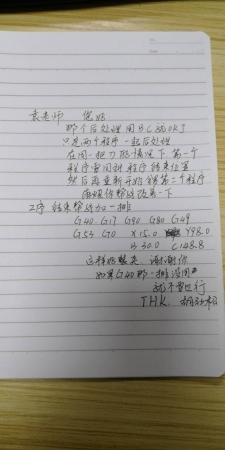 袁老师 您好
那个后处理用BC 360K了
只是两个程序一起后处理
在同一把刀的情况下 第一个
程序要回到程序结束位置
然后再重新开始铣第二个程序
麻烦你帮我改一下
2.序 结束帮我加一排
G40 G17 G90 G80 G49
G53 G0 X15.0 Y98.0
B30.0 C148.8
这样好, 谢谢你
如果G40那一排没用
就不要也行
THK.